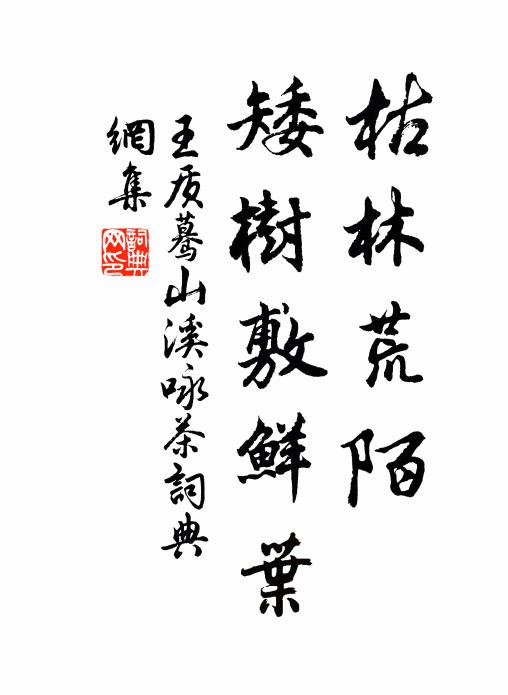 枯林荒陌
矮樹敷鮮葉
王质蓦山溪咏茶詞典
網集
詞典網印